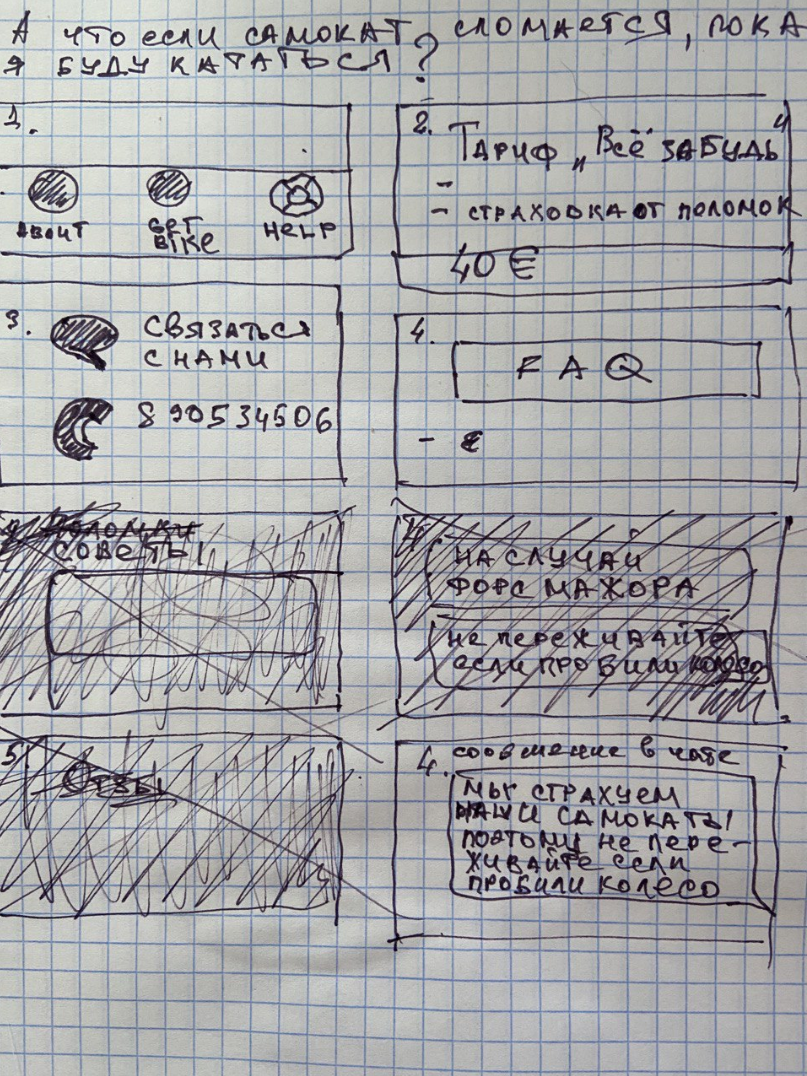 А ЧТО ЕСЛИ САМОКАТ СЛОМАЕТСЯ, ПОКА
Я БУДУ КАТАТЬСЯ?
1.
ABOUT
GET
BIKE
HELP
2.
ТАРИФ „ВСЁ ЗАБУДЬ"
-
- СТРАХОВКА ОТ ПОЛОМОК
40 €
3.
СВЯЗАТЬСЯ
С НАМИ
8 90534506
4.
FAQ
-
ПОЛОМКИ
СОВЕТЫ
4.
НА СЛУЧАЙ
ФОРС МАЖОРА
НЕ ПЕРЕЖИВАЙТЕ
ЕСЛИ ПРОБИЛИ КОЛЕСО
5
4.
СООБЩЕНИЕ В ЧАТЕ
МЫ СТРАХУЕМ
НАШИ САМОКАТЫ
ПОЭТОМУ НЕ ПЕРЕ-
ЖИВАЙТЕ ЕСЛИ
ПРОБИЛИ КОЛЕСО